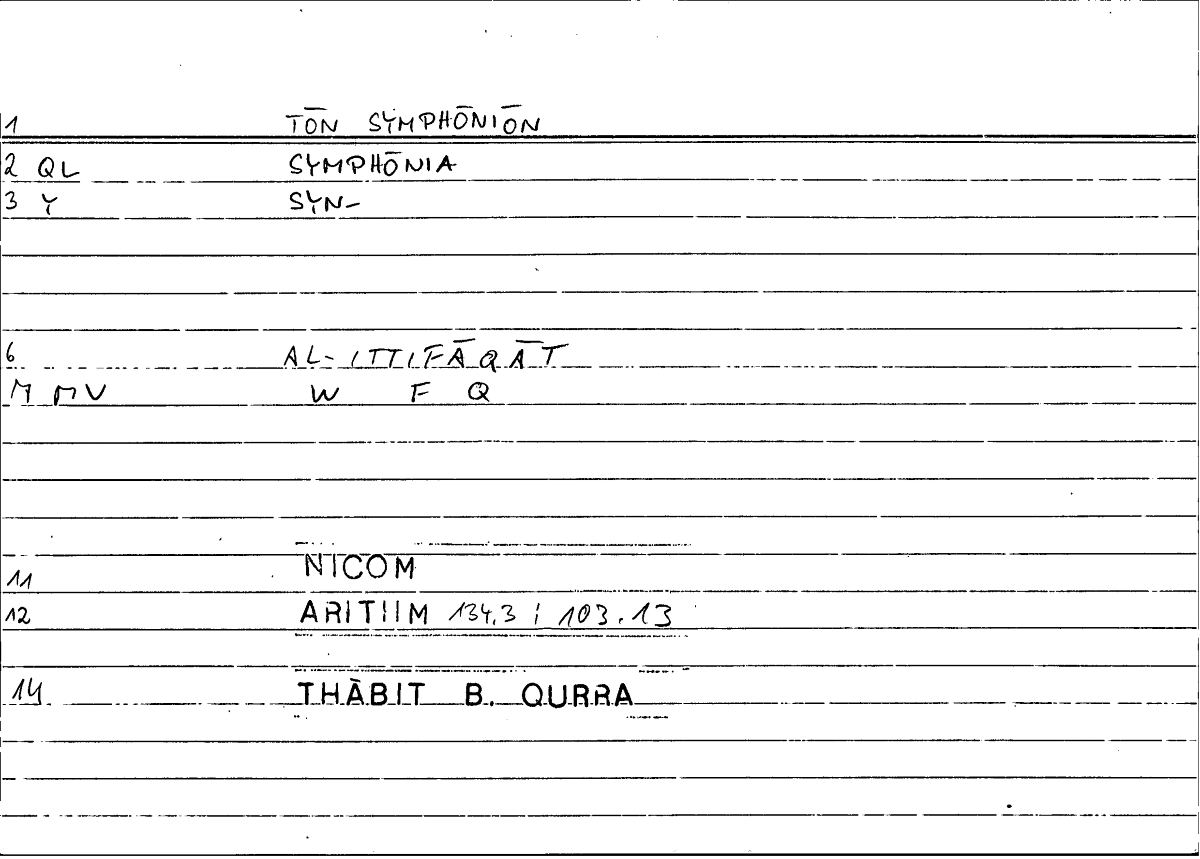 1 TŌN SYMPHŌNIŌN
2 QL SYMPHŌNIA
3 Y SYN-
6 AL-ITTIFĀQĀT
7 MV W F Q
11 NICOM
12 ARITHM 134.3 ; 103.13
14 THĀBIT B. QURRA